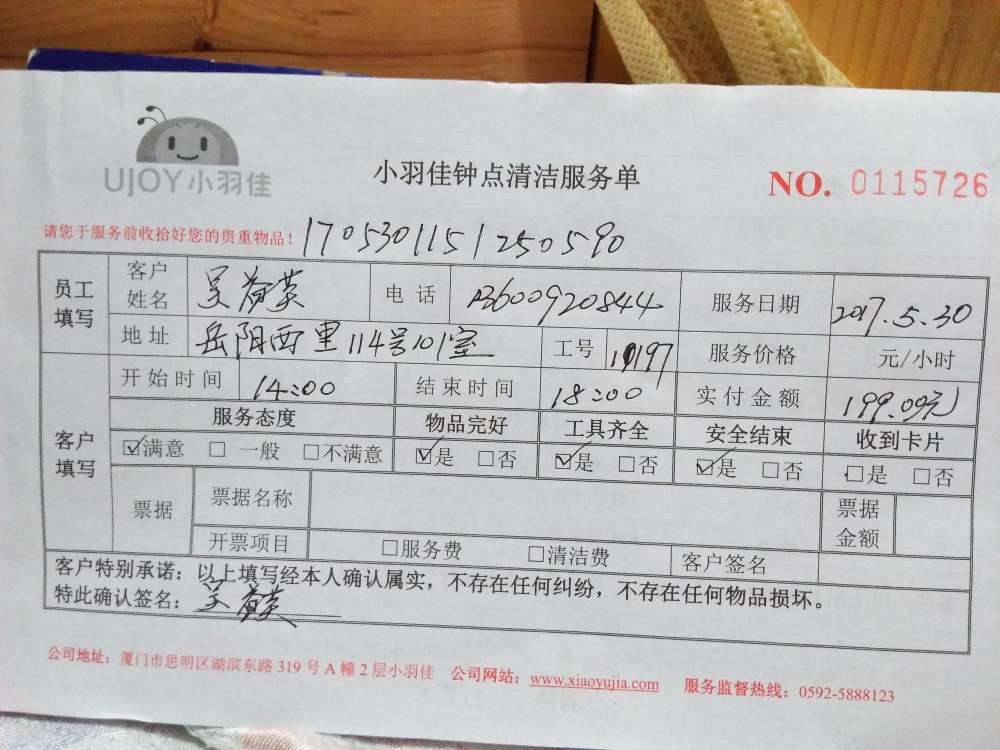 UJOY小羽佳
小羽佳钟点清洁服务单
NO. 0115726
请您于服务前收拾好您的贵重物品！ 1705301151250590
员工填写 客户姓名 吴 电话 13600920844 服务日期 2017.5.30
地址 岳阳西里114号101室 工号 服务价格 元/小时
开始时间 14:00 结束时间 18:00 实付金额 199.00元
客户填写 服务态度 物品完好 工具齐全 安全结束 收到卡片
☑满意 □一般 □不满意 ☑是 □否 ☑是 □否 ☑是 □否 □是 □否
票据 票据名称 票据金额
开票项目 □服务费 □清洁费 客户签名
客户特别承诺：以上填写经本人确认属实，不存在任何纠纷，不存在任何物品损坏。
特此确认签名：吴
公司地址：厦门市思明区湖滨东路 319 号 A 幢 2 层小羽佳 公司网站：www.xiaoyujia.com 服务监督热线：0592-5888123